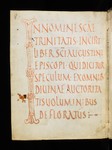 IN NOMINE SCAE
TRINITATIS INCIPIT
LIBER SCI AUGUSTINI
EPISCOPI QUI DICITUR
SPECULUM EX OMNIB
DIUINAE AUCTORI
TIS UOLUMINIBUS
DEFLORATUS